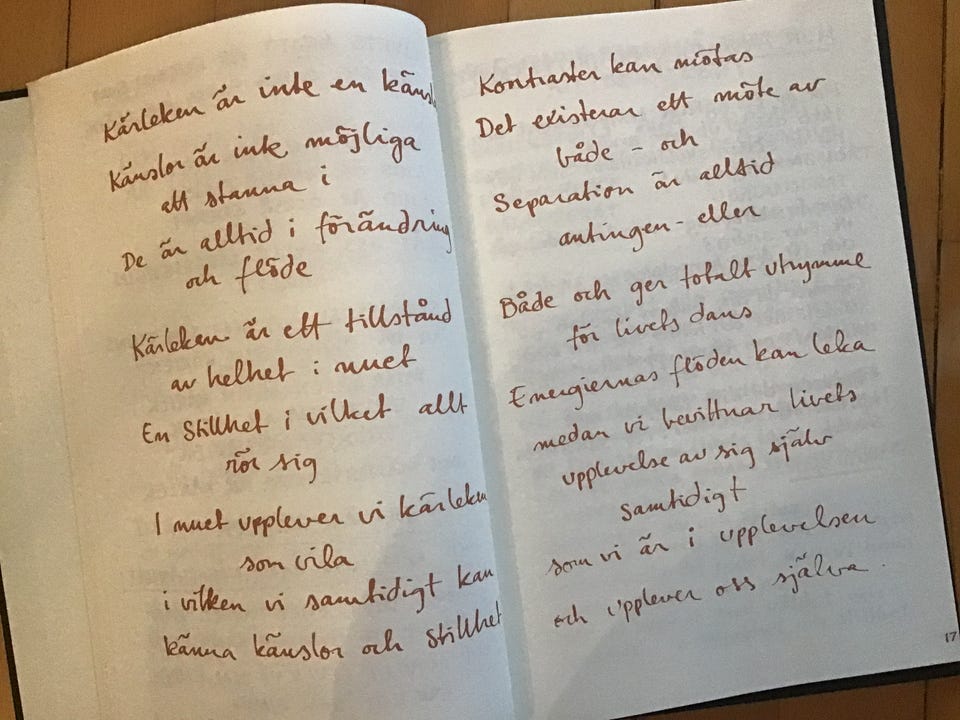 Kärleken är inte en känsl
Känslor är inte möjliga
att stanna i
De är alltid i förändring
och flöde
Kärleken är ett tillstånd
av helhet i nuet
En Stillhet i vilket allt
rör sig
I nuet upplever vi kärleken
som vila
i vilken vi samtidigt kan
känna känslor och stillhet
Kontraster kan mötas
Det existerar ett möte av
både - och
Separation är alltid
antingen - eller
Både och ger totalt utrymme
för livets dans
Energiernas flöden kan leka
medan vi bevittnar livets
upplevelse av sig själv
samtidigt
som vi är i upplevelsen
och upplever oss själva.
17